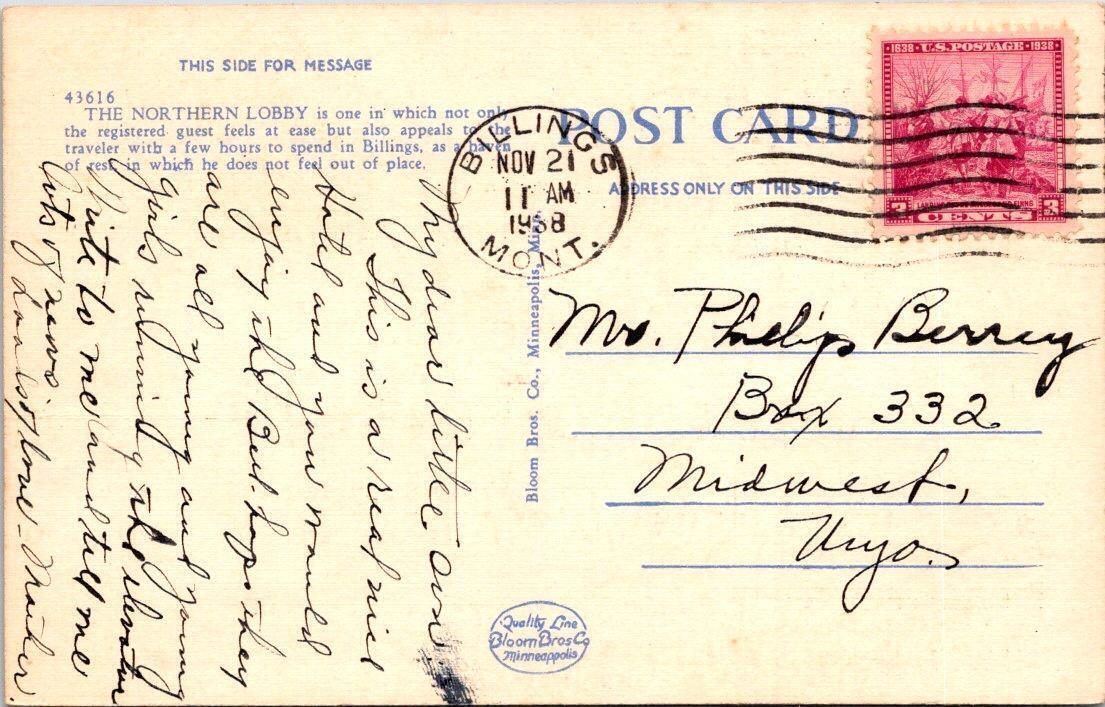 THIS SIDE FOR MESSAGE
43616
THE NORTHERN LOBBY is one in which not only
the registered guest feels at ease but also appeals to the
traveler with a few hours to spend in Billings, as a haven
of rest, in which he does not feel out of place.
My dear little own
This is a real nice
Hotel and you would
enjoy the Bell hops they
are all young and young
girls running the elevator
Write to me and tell me
lots of news
Loads of love - Mother.
Bloom Bros. Co., Minneapolis, Minn.
Quality Line
Bloom Bros Co
Minneapolis
POST CARD
ADDRESS ONLY ON THIS SIDE
BILLINGS
NOV 21
11 AM
1938
MONT.
1638 · U.S. POSTAGE · 1938
3 CENTS 3
Mrs. Philip Berray
Box 332
Midwest,
Wyo.